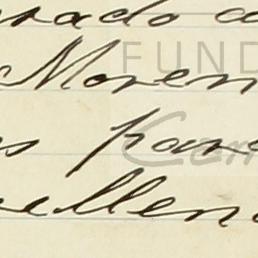 rado a
Moren
s para
ellen
FUND
Cam